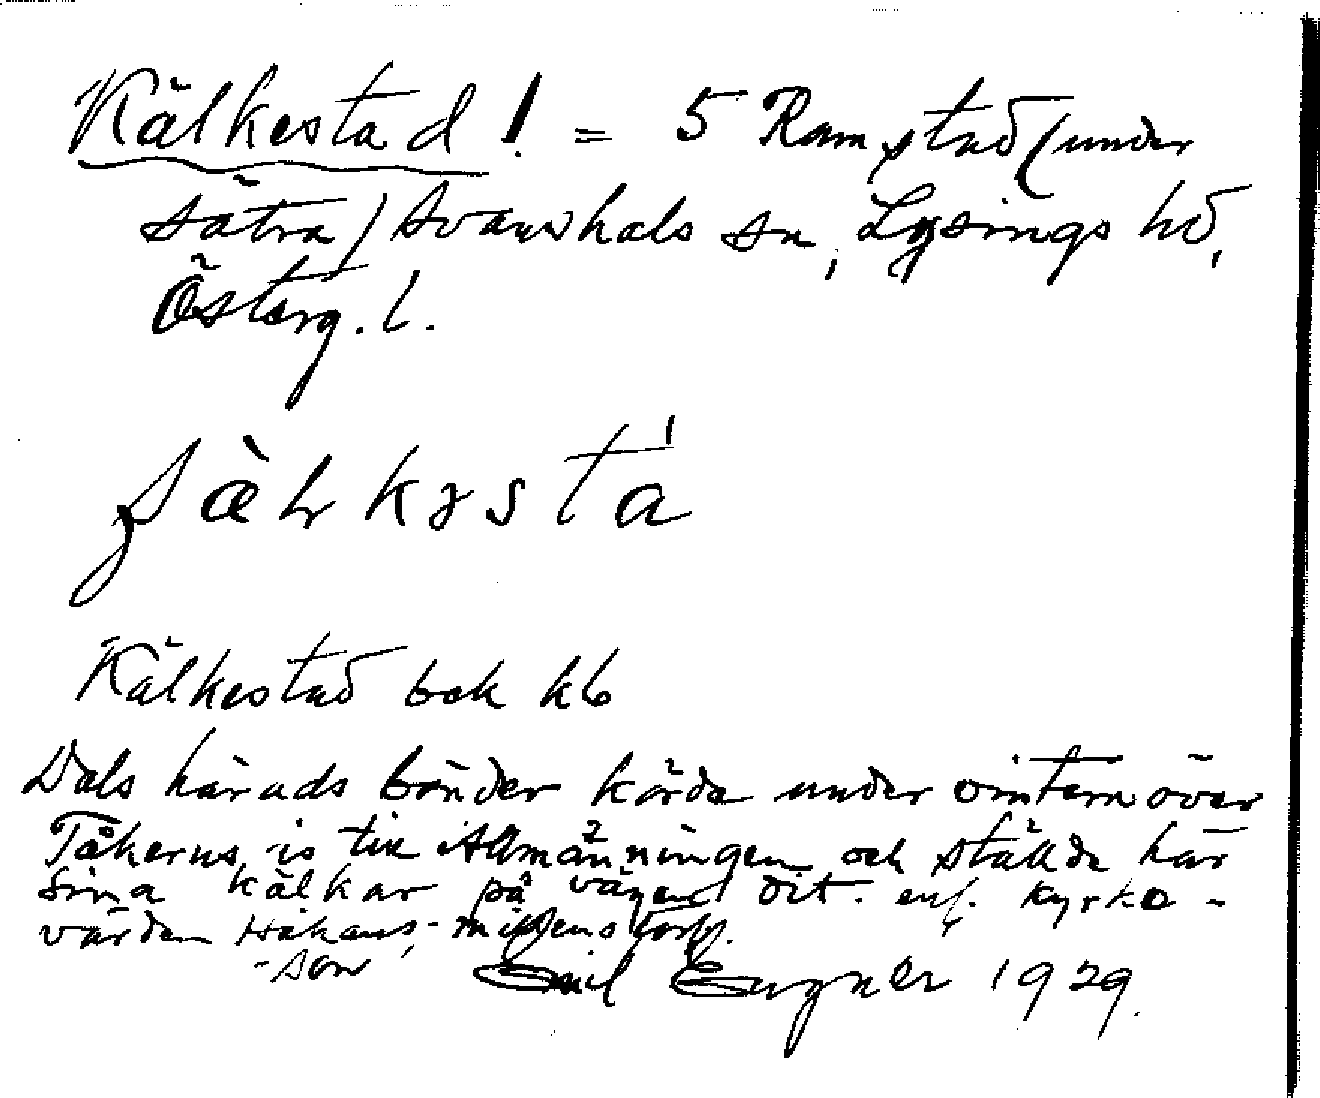 Kälkestad! = 5 Ramstad (under
sätra) Svanshals sn, Lysings hd,
Österg. l.
Kälkestad bok kb
Dals härads bönder körde under vintern över
Tåkerns is till Allmänningen och ställde här
sina kälkar på vägen dit. enl. kyrko-
värden Håkans-
-son
Emil Eugnér 1929.